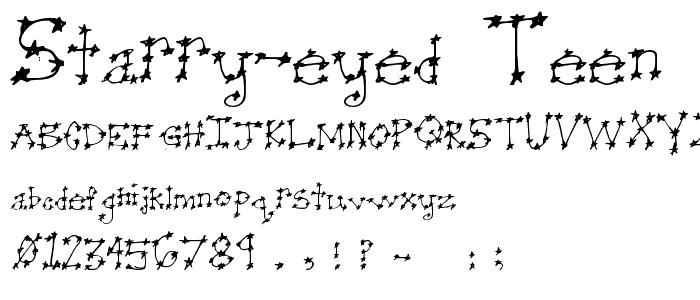 Starry-eyed Teen
ABCDEFGHIJKLMNOPQRSTUVWXYZ
abcdefghijklmnopqrstuvwxyz
0123456789 . , ! ? - : ;